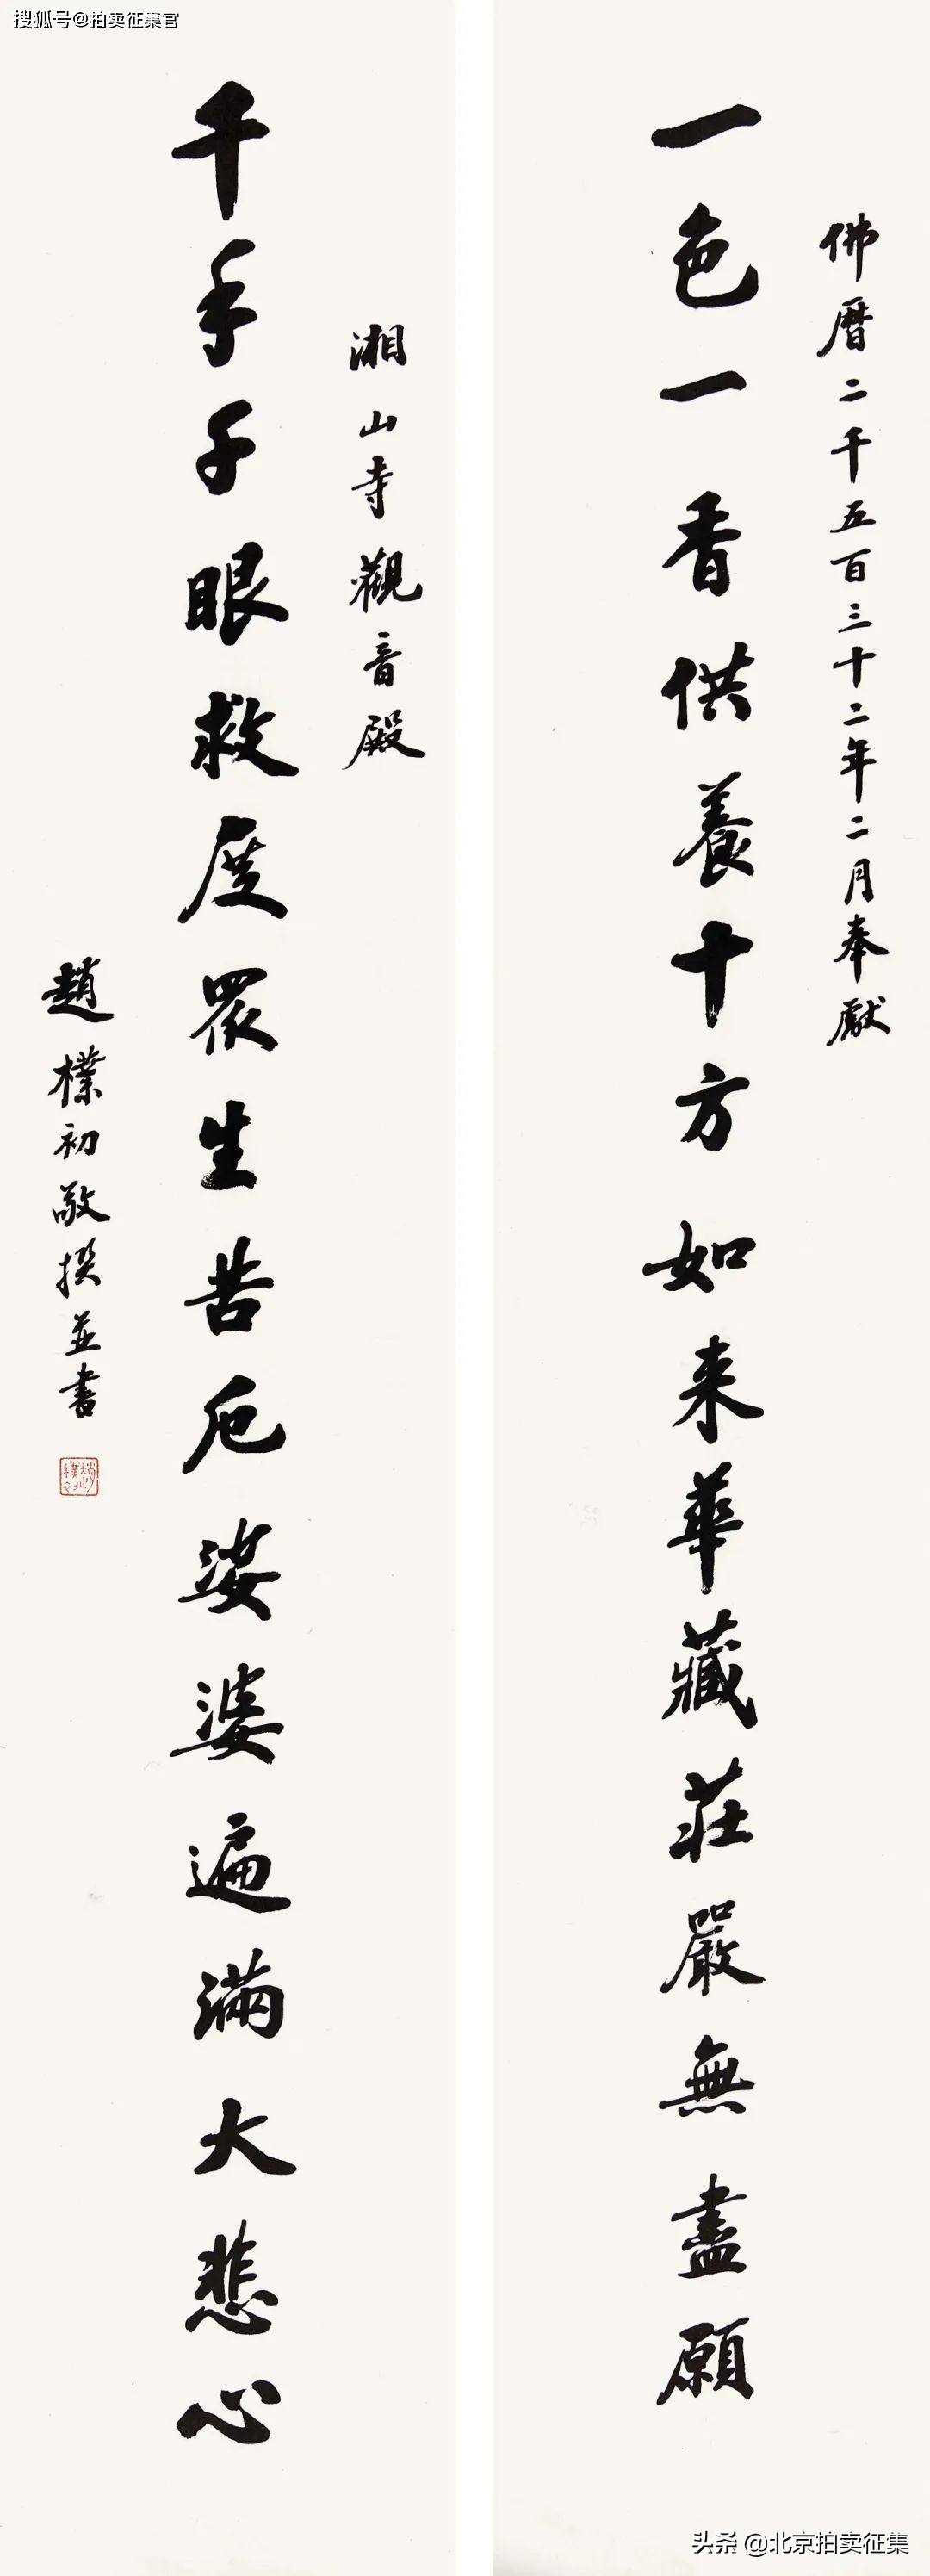 搜狐号@拍卖征集官
佛暦二千五百三十二年二月奉獻
一色一香供養十方如来華藏莊嚴無盡願
湘山寺觀音殿
千手千眼救度眾生苦厄娑婆遍滿大悲心
趙樸初敬撰並書
趙樸初
头条 @北京拍卖征集